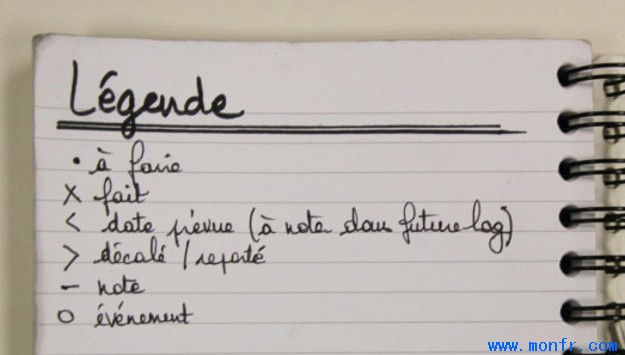 Légende
• à faire
X fait
< date prévue (à noter dans future log)
> décalé / reporté
– note
O événement
www.monfr.com